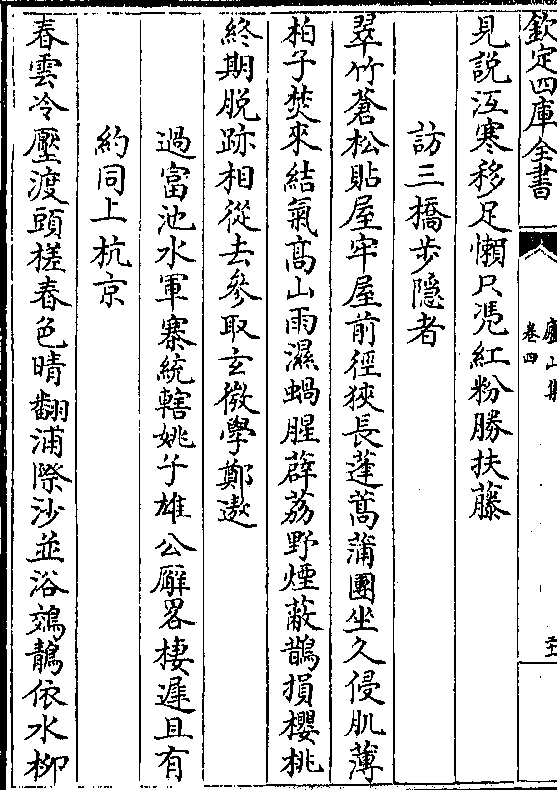 欽定四庫全書
廬山集
卷四
見説沍寒移足懶只凴紅粉勝扶藤
訪三橋步隠者
翠竹蒼松貼屋牢屋前徑狹長蓬蒿蒲團坐久侵肌薄
柏子焚來結氣髙山雨濕蝸腥薜荔野煙蔽鵲損櫻桃
終期脱跡相從去參取玄微學鄭遨
過富池水軍寨統轄姚子雄公廨畧棲遲且有
約同上杭京
春雲冷壓渡頭槎春色晴翻浦際沙並浴鵁鶄依水柳